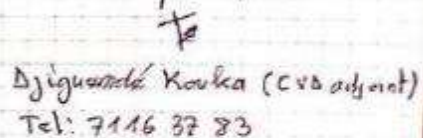 Djiguemdé Kouka (CVD adjoint)
Tel: 7116 37 83